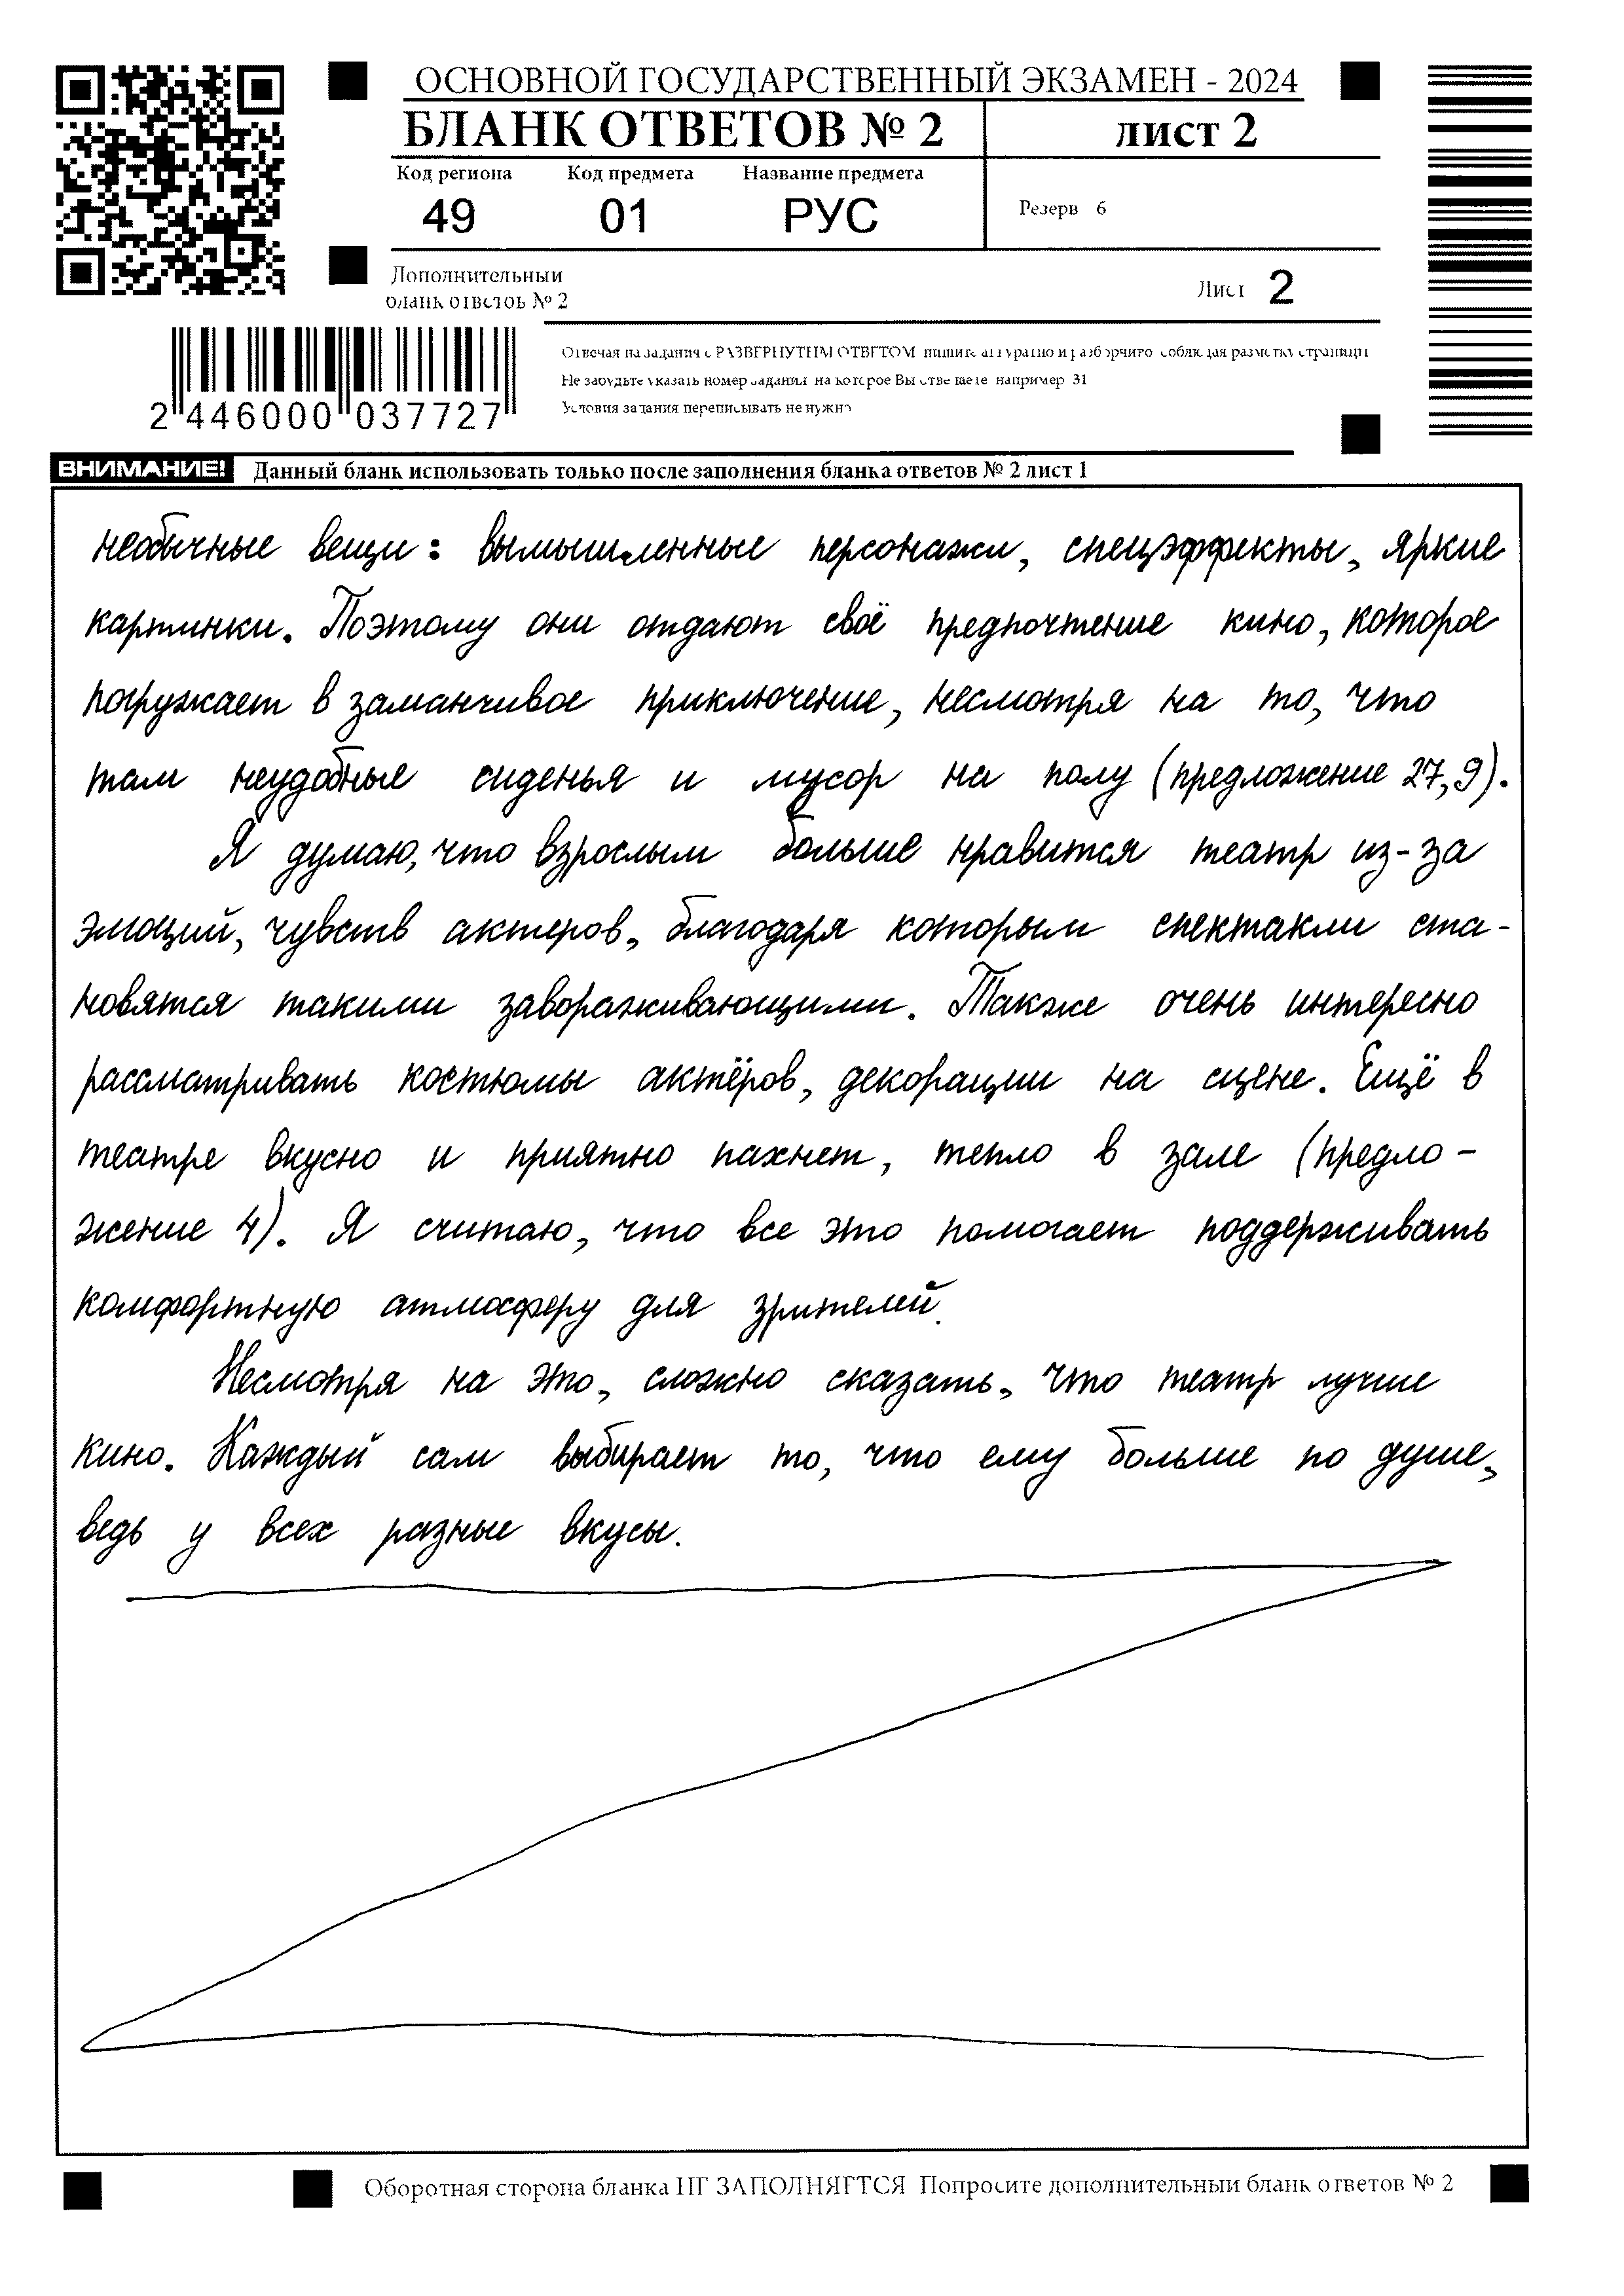 ОСНОВНОЙ ГОСУДАРСТВЕННЫЙ ЭКЗАМЕН - 2024
БЛАНК ОТВЕТОВ № 2
лист 2
Код региона Код предмета Название предмета
49 01 РУС
Резерв 6
Дополнительный
бланк ответов № 2
Лист 2
Отвечая на задания с РАЗВЕРНУТЫМ ОТВЕТОМ пишите аккуратно и разборчиво соблюдая разметку страницы
Не забудьте указать номер задания на которое Вы отвечаете например 31
Условия задания переписывать не нужно
2 446000 037727
ВНИМАНИЕ! Данный бланк использовать только после заполнения бланка ответов № 2 лист 1
необычные вещи: вымышленные персонажи, спецэффекты, яркие
картинки. Поэтому они отдают своё предпочтение кино, которое
погружает в заманчивое приключение, несмотря на то, что
там неудобные сиденья и мусор на полу (предложение 27,9).
Я думаю, что взрослым больше нравится театр из-за
эмоций, чувств актеров, благодаря которым спектакли ста-
новятся такими завораживающими. Также очень интересно
рассматривать костюмы актёров, декорации на сцене. Ещё в
театре вкусно и приятно пахнет, тепло в зале (предло-
жение 4). Я считаю, что все это помогает поддерживать
комфортную атмосферу для зрителей.
Несмотря на это, сложно сказать, что театр лучше
кино. Каждый сам выбирает то, что ему больше по душе,
ведь у всех разные вкусы.
Оборотная сторона бланка НЕ ЗАПОЛНЯЕТСЯ Попросите дополнительный бланк ответов № 2